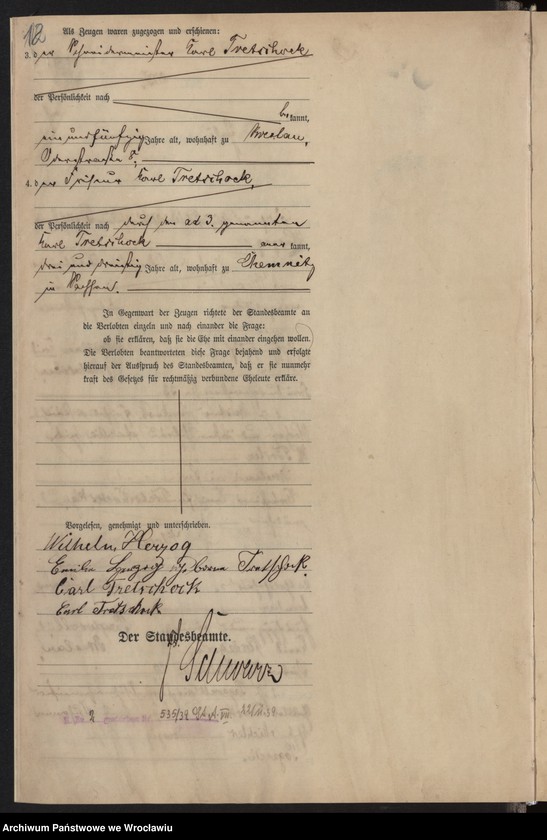 12
Als Zeugen waren zugezogen und erschienen:
3. der Schneidermeister Karl Tretschock
der Persönlichkeit nach
be kannt,
einundfünfzig Jahre alt, wohnhaft zu Breslau,
Oderstrasse 8,
4. der Friseur Karl Tretschock,
der Persönlichkeit nach durch den ad 3. genannten
Karl Tretschock aner kannt,
drei und dreißig Jahre alt, wohnhaft zu Chemnitz
in Sachsen.
In Gegenwart der Zeugen richtete der Standesbeamte an
die Verlobten einzeln und nach einander die Frage:
ob sie erklären, daß sie die Ehe mit einander eingehen wollen.
Die Verlobten beantworteten diese Frage bejahend und erfolgte
hierauf der Ausspruch des Standesbeamten, daß er sie nunmehr
kraft des Gesetzes für rechtmäßig verbundene Eheleute erkläre.
Vorgelesen, genehmigt und unterschrieben.
Wilhelm Herzog
Emilie Herzog geborene Tretschock.
Carl Tretschock
Carl Tretschock
Der Standesbeamte.
Schwarz
2 535/39
Archiwum Państwowe we Wrocławiu